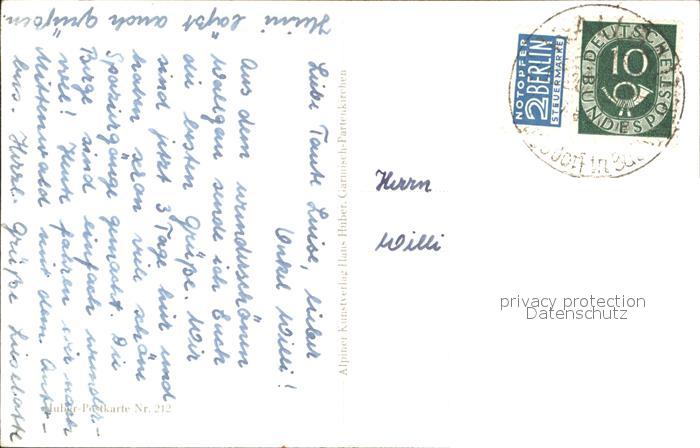 Liebe Tante Luise, lieber
Onkel Willi!
Aus dem wunderschönen
Wallgau sende ich Euch
die besten Grüße. Wir
sind jetzt 3 Tage hier und
haben schon viele schöne
Spaziergänge gemacht. Die
Berge sind einfach wunder-
voll! Heute fahren wir nach
Mittenwald mit dem Auto-
bus. Herzl. Grüße Liselotte
Heini laßt auch grüßen
Alpiner Kunstverlag Hans Huber, Garmisch-Partenkirchen
Huber-Postkarte Nr. 212
Herrn
Willi
NOTOPFER
2 BERLIN
STEUERMARKE
DEUTSCHE BUNDESPOST
10
privacy protection
Datenschutz